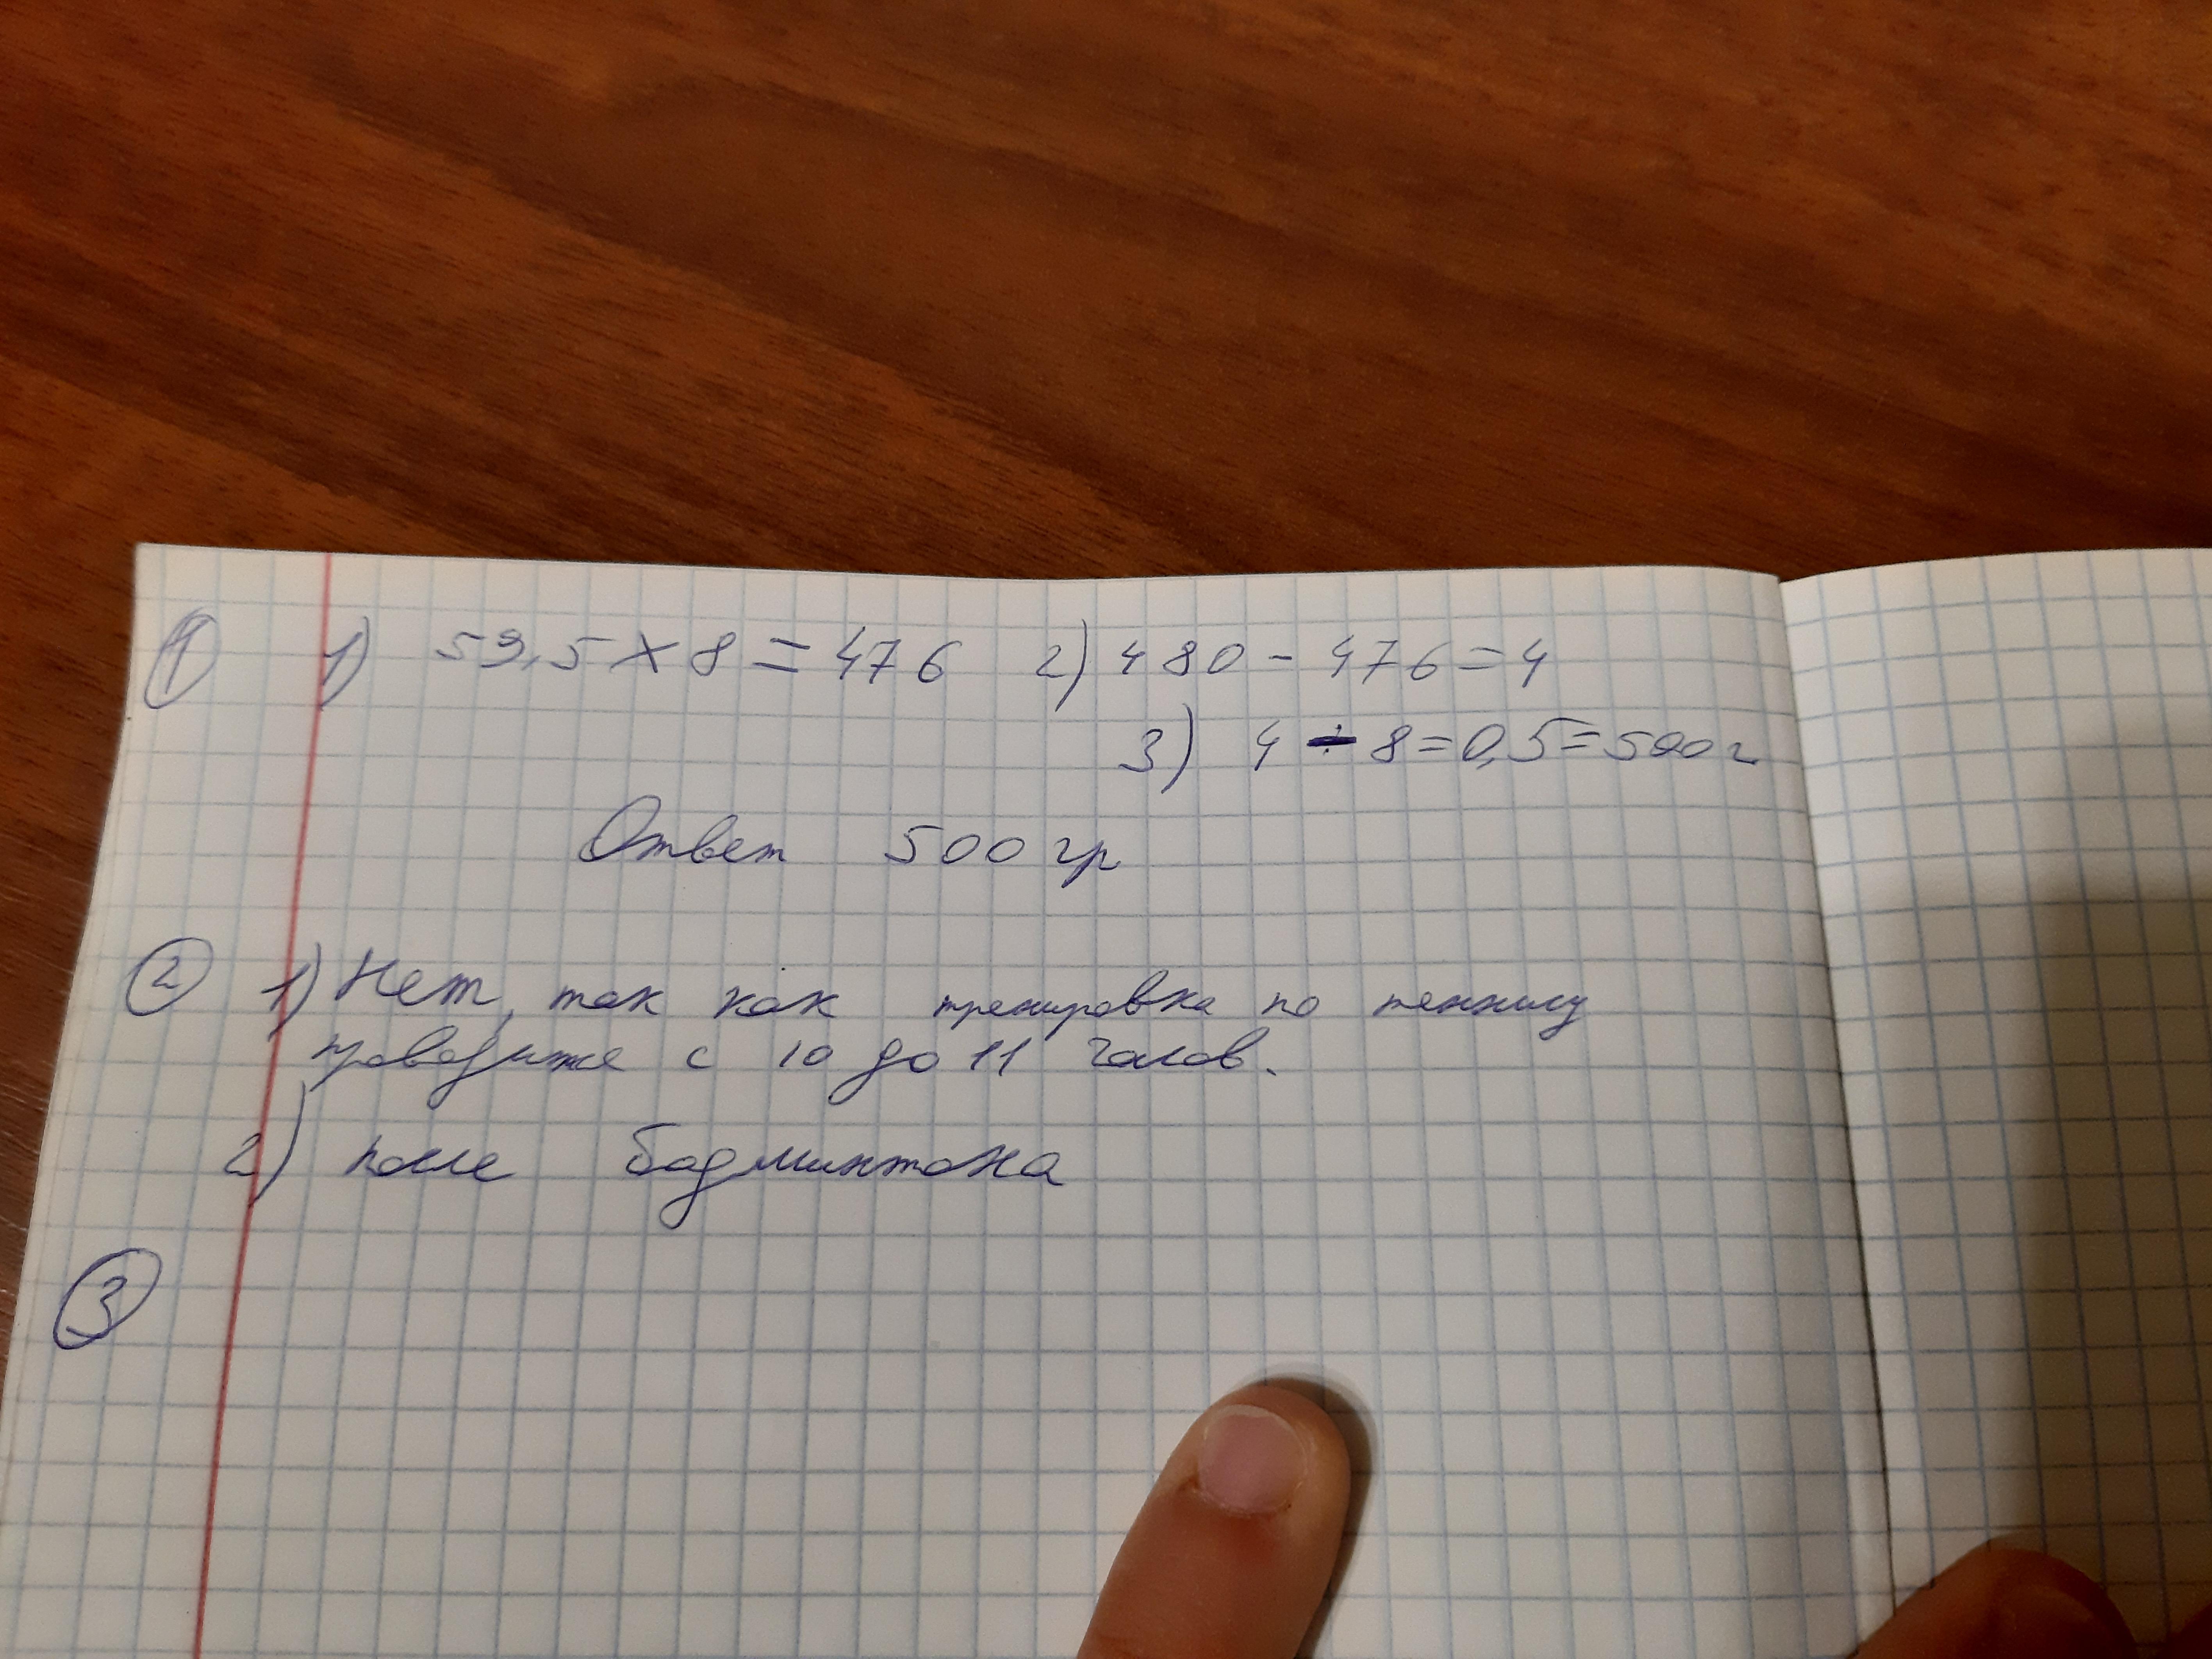 ① 1) 59,5 × 8 = 476 2) 480 - 476 = 4
3) 4 ÷ 8 = 0,5 = 500 г
Ответ 500 гр
② 1) Нет, так как тренировка по теннису
проводится с 10 до 11 часов.
2) после бадминтона
③